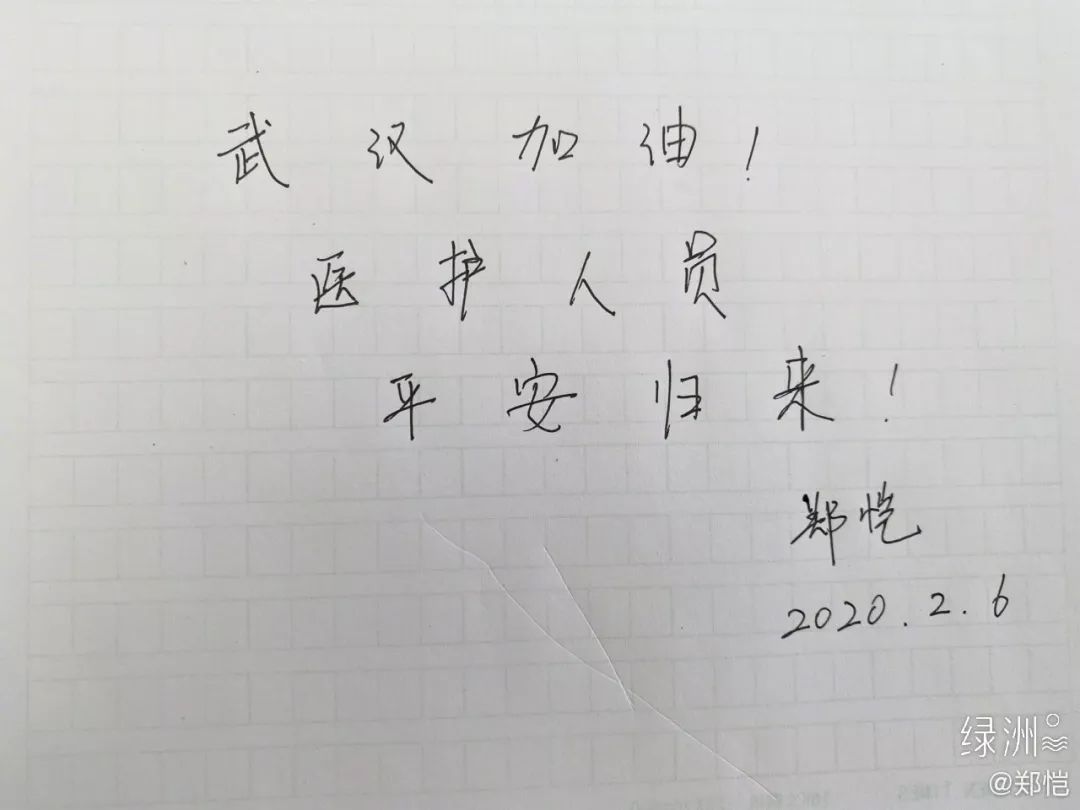 武汉加油!
医护人员
平安归来!
郑恺
2020.2.6
绿洲
@郑恺